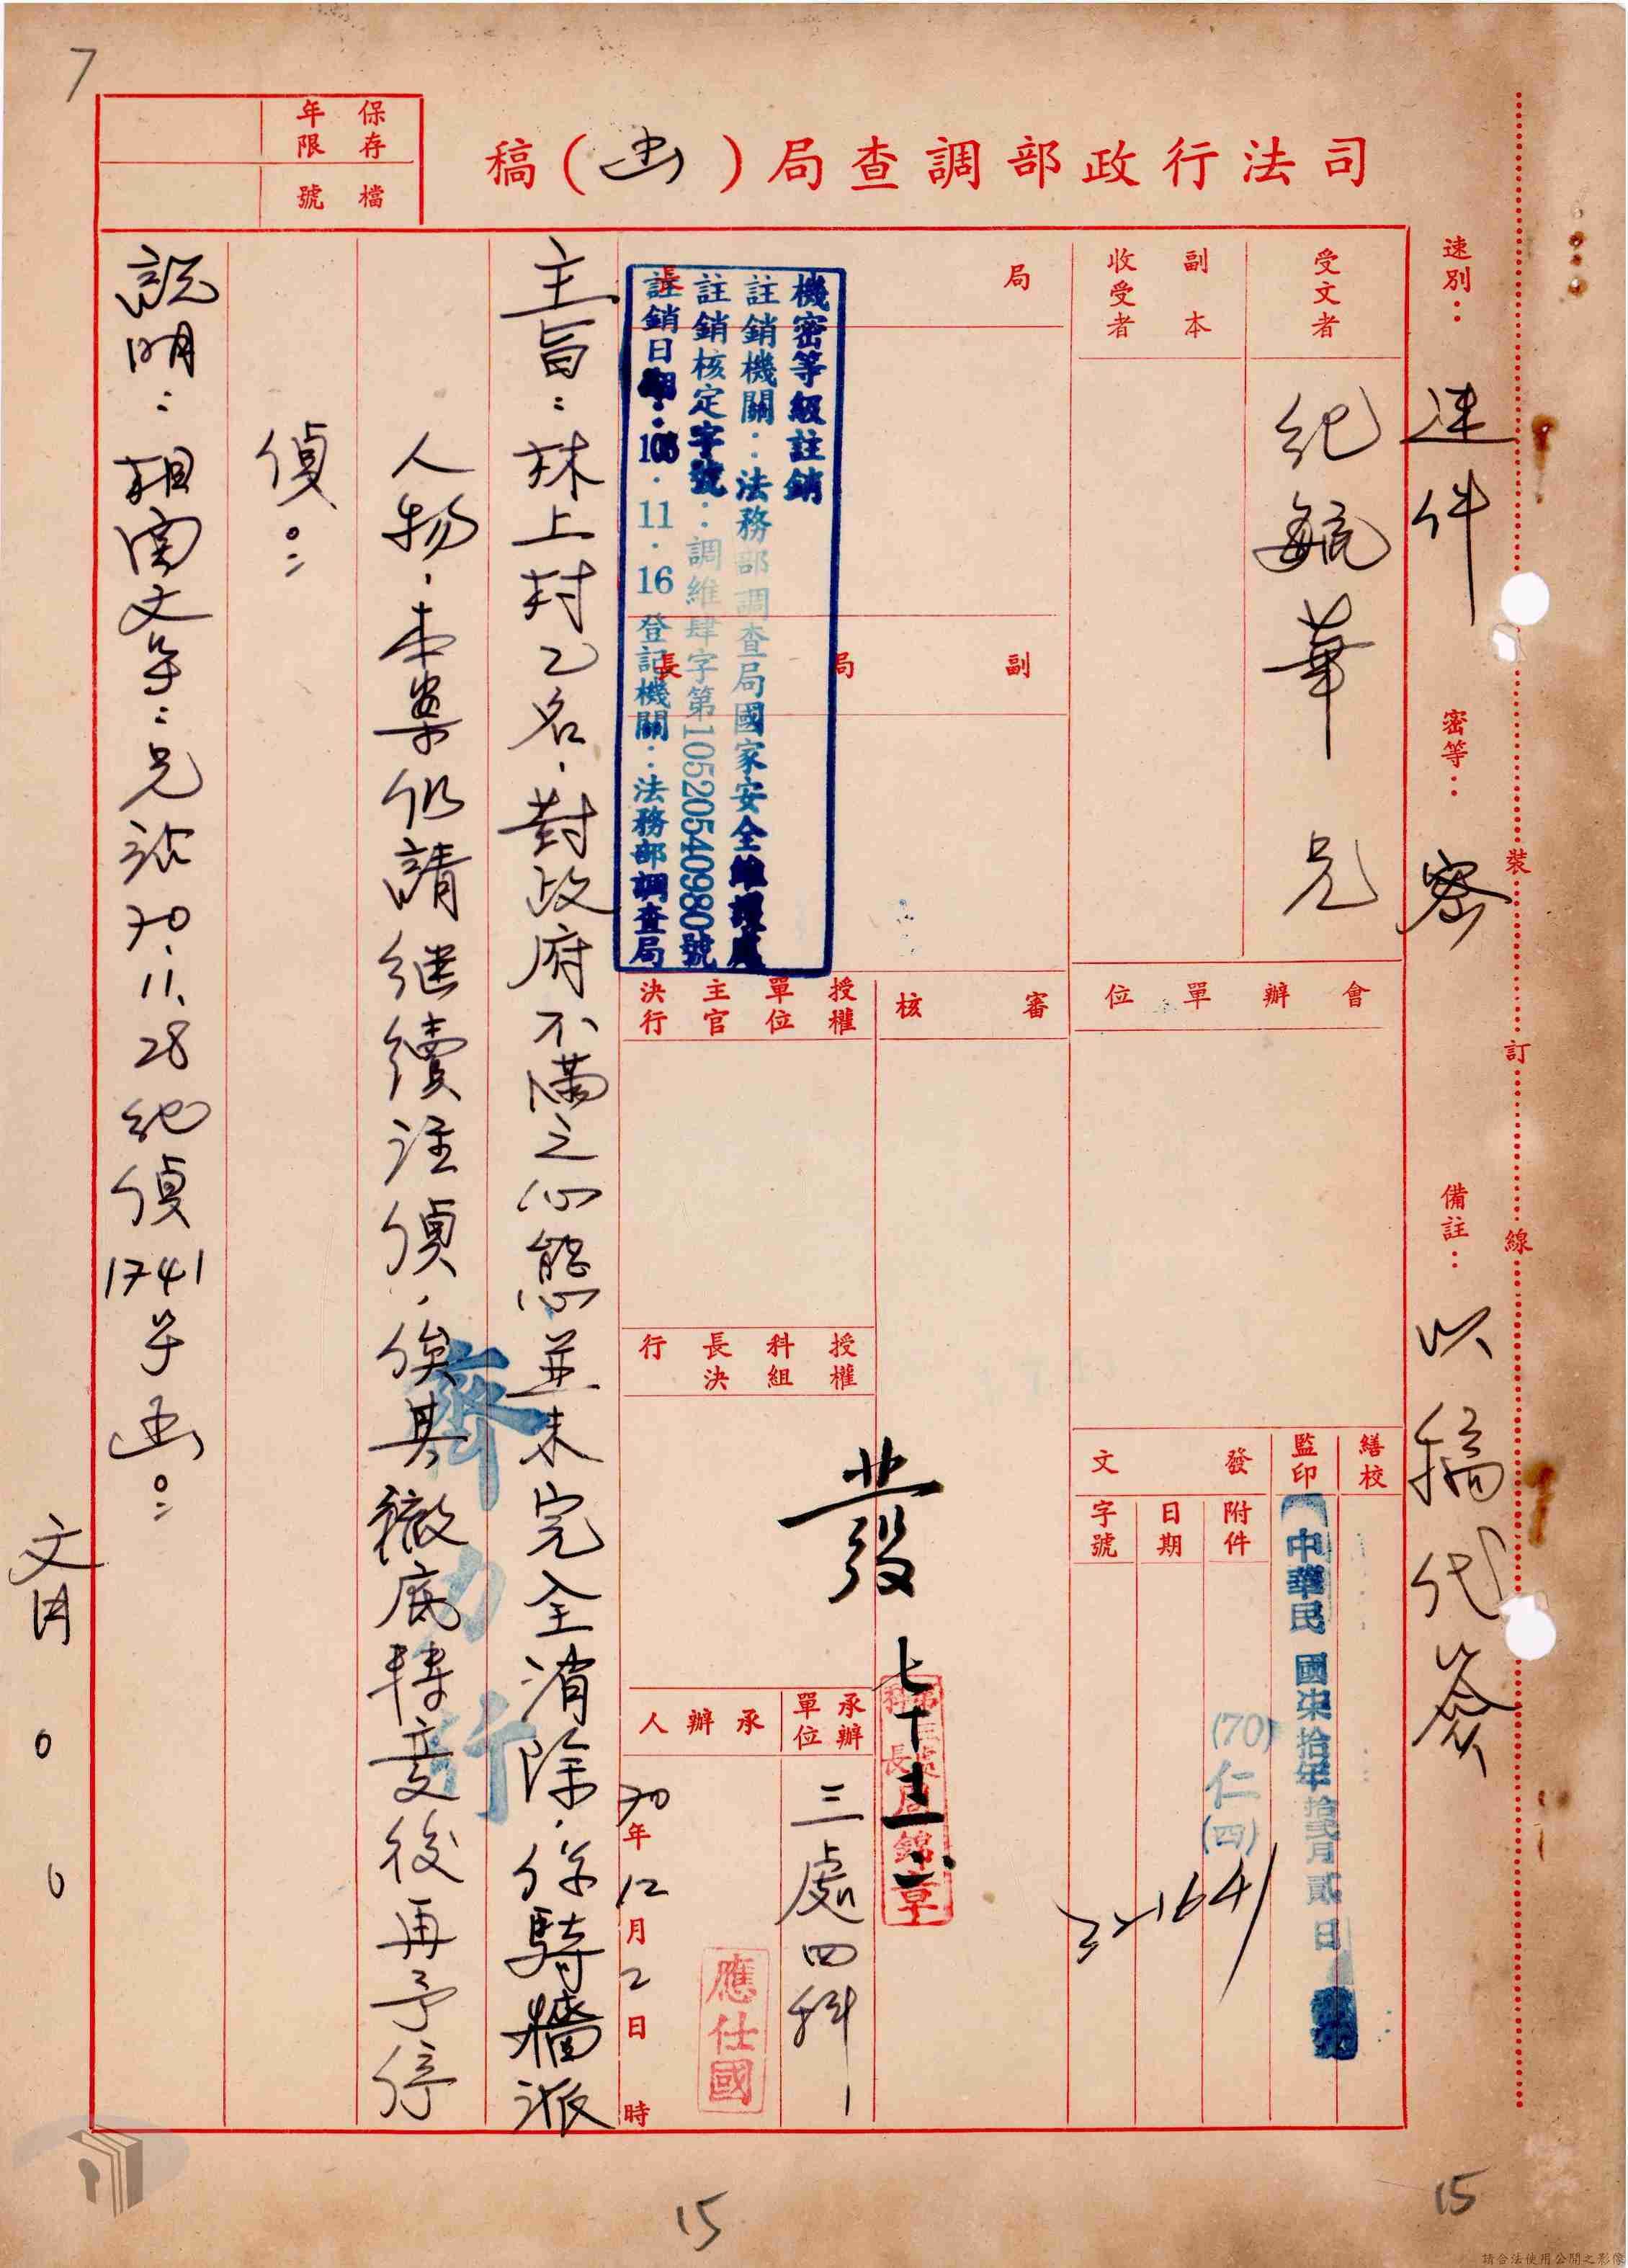 7
司法行政部調查局（函）稿
保存年限
檔號
速別：速件
密等：密
備註：以稿代簽
裝訂線
受文者
紀毓華兄
副本收受者
會辦單位
繕校
監印
中華民國柒拾年拾貳月貳日
發文
附件
日期
字號
(70)仁(四)
局長
副局長
機密等級註銷
註銷機關：法務部調查局國家安全維護處
註銷核定字號：調維肆字第10520540980號
註銷日期：105.11.16登記機關：法務部調查局
審核
發
七十
授權單位主官決行
授權科組長決行
承辦單位
三處四科
承辦人
應仕國
70年12月2日時
主旨：林上封乙名，對政府不滿之心態並未完全消除，係騎牆派
人物，本案仍請繼續注偵，俟其徹底轉變後再予停
偵。
說明：相關文號：兄站70.11.28紀偵1741號函。
15
15
請合法使用公開之影像